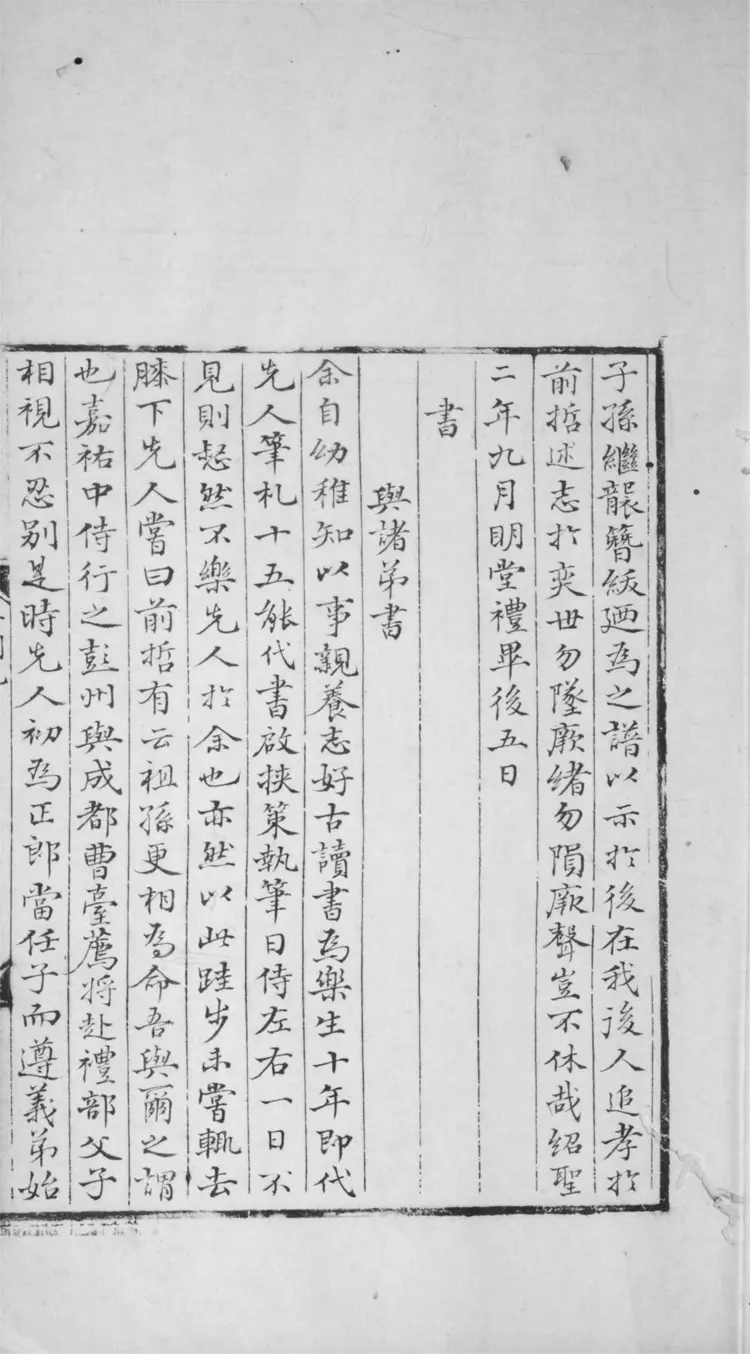 子孫繼襲簪紱廼為之譜以示於後在我後人追孝於
前哲述志於奕世勿墜厥緒勿隕厥聲豈不休哉紹聖
二年九月明堂禮畢後五日
書
與諸弟書
余自幼稚知以事親養志好古讀書為樂生十年即代
先人筆札十五能代書啟挾策執筆日侍左右一日不
見則愸然不樂先人於余也亦然以此跬步未嘗輒去
膝下先人嘗曰前哲有云祖孫更相為命吾與爾之謂
也嘉祐中侍行之彭州與成都曹臺薦將赴禮部父子
相視不忍別是時先人初為正郎當任子而遵義弟始